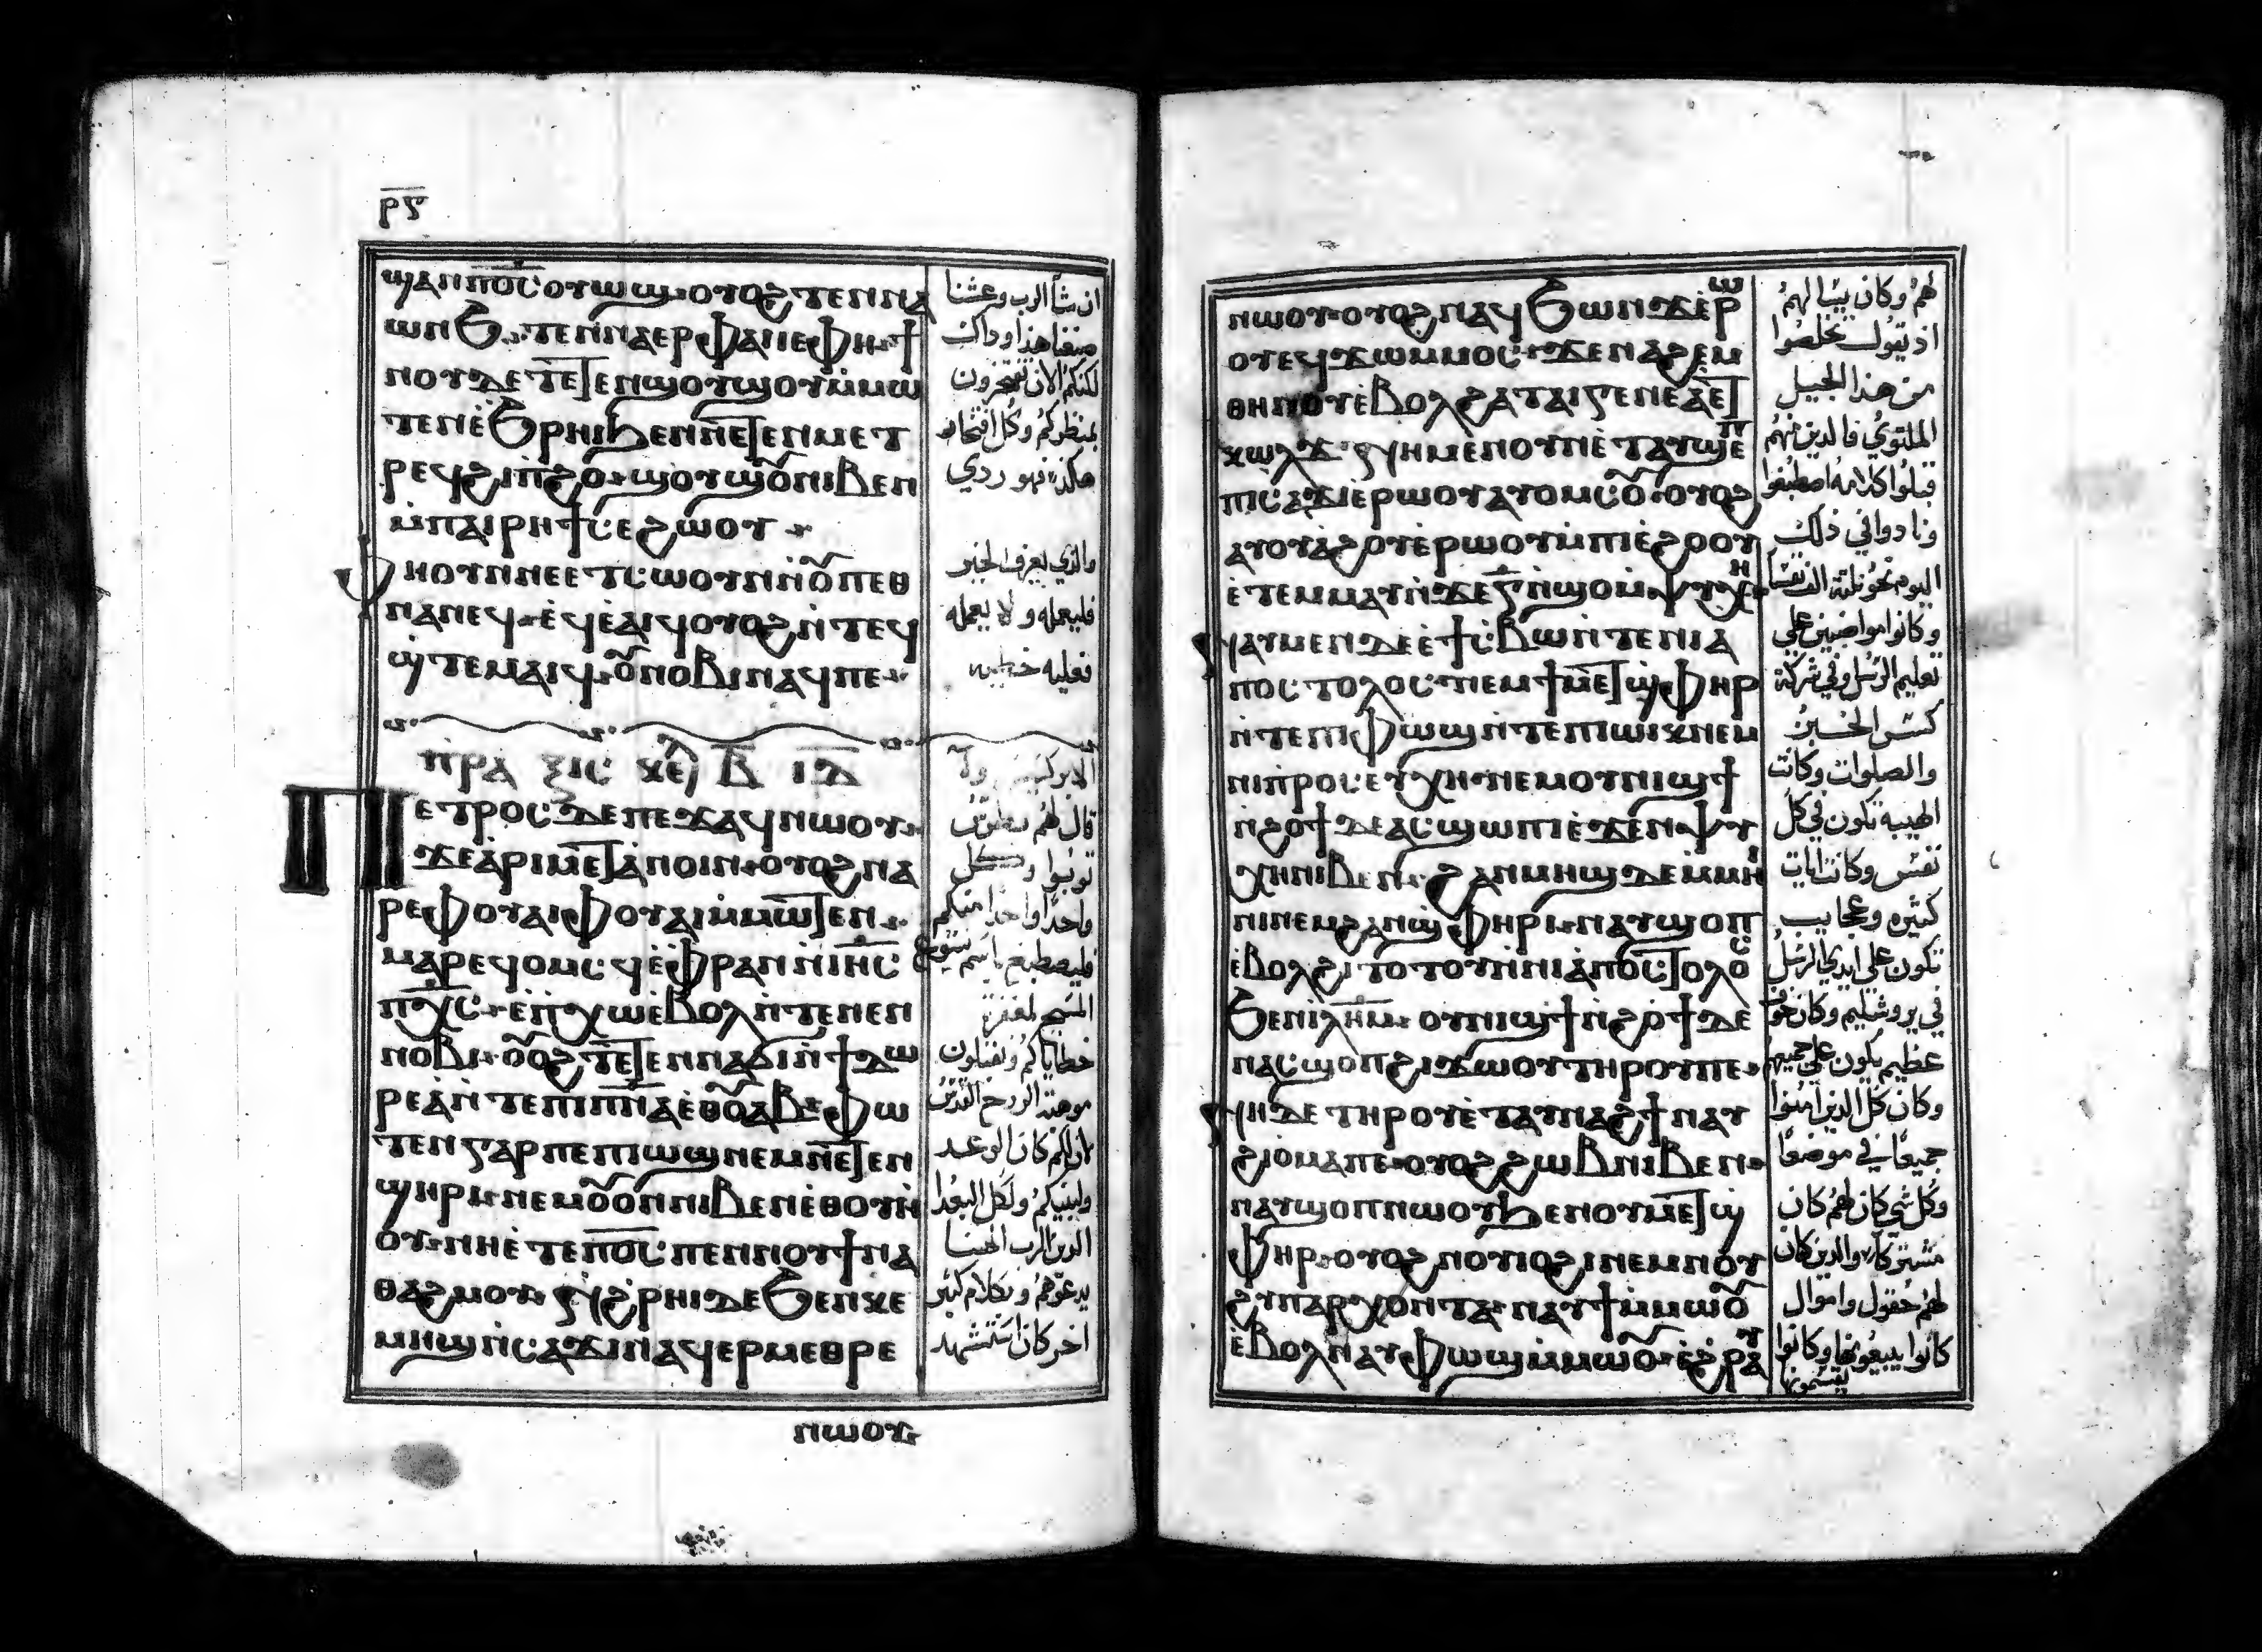 ⲣ̅ϛ̅
ϣⲁⲛⲡ̅ⲟ̅ⲥ̅ ⲟⲩⲱϣ ⲟⲩⲟϩ ⲧⲉⲛⲛⲁ
ⲱⲛϧ ⲧⲉⲛⲛⲁⲉⲣ ⲫⲁⲓ ⲓⲉ ⲫⲏ ϯ
ⲛⲟⲩ ⲇⲉ ⲧⲉⲧⲉⲛϣⲟⲩϣⲟⲩ ⲙ̀ⲙⲱ
ⲧⲉⲛ ⲉ̀ϧⲣⲏⲓ ϧⲉⲛ ⲛⲉⲧⲉⲛⲙⲉⲧ
ⲣⲉϥϩⲓⲡ̀ϩⲟ ϣⲟⲩϣⲟ̅ ⲛⲓⲃⲉⲛ
ⲙ̀ⲡⲁⲓⲣⲏϯ ⲥⲉϩⲱⲟⲩ
ⲫⲏ ⲟⲩⲛ ⲛⲉⲉⲧⲥⲱⲟⲩⲛ ⲛ̀ⲟ̅ⲡⲉⲑ
ⲛⲁⲛⲉϥ ⲉ̀ϥⲉ̀ⲁⲓϥ ⲟⲩⲟϩ ⲛ̀ⲧⲉϥ
ϣ̀ⲧⲉⲙⲁⲓϥ ⲟ̅ⲛⲟⲃⲓ ⲛⲁϥ ⲡⲉ
ⲡ̀ⲣⲁⲝⲓⲥ ⲕⲉⲫ ⲃ̅ ⲓ̅ⲇ̅
ⲡⲉⲧⲣⲟⲥ ⲇⲉ ⲡⲉϫⲁϥ ⲛⲱⲟⲩ
ϫⲉ ⲁ̀ⲣⲓⲙⲉⲧⲁ̀ⲛⲟⲓⲛ ⲟⲩⲟϩ ⲙⲁ
ⲣⲉ ⲫⲟⲩⲁⲓ ⲫⲟⲩⲁⲓ ⲙ̀ⲙⲱⲧⲉⲛ
ⲙⲁⲣⲉϥⲟⲙⲥϥ ⲉ̀ⲫⲣⲁⲛ ⲛ̀ⲓⲏ̅ⲥ̅
ⲡ̅ⲭ̅ⲥ̅ ⲉ̀ⲡⲭⲱ ⲉ̀ⲃⲟⲗ ⲛ̀ⲧⲉ ⲛⲉⲛ
ⲛⲟⲃⲓ ⲟ̅ⲟϩ ⲧⲉⲧⲉⲛⲛⲁϭⲓ ⲛ̀ϯⲇⲱ
ⲣⲉⲁ̀ ⲛ̀ⲧⲉ ⲡⲓⲡ̅ⲛ̅ⲁ̅ ⲉⲑⲟ̅ⲁⲃ ⲫⲱ
ⲧⲉⲛ ⲅⲁⲣ ⲡⲉ ⲡⲓⲱϣ ⲛⲉⲙ ⲛⲉⲧⲉⲛ
ϣⲏⲣⲓ ⲛⲉⲙ ⲟ̅ⲟⲛ ⲛⲓⲃⲉⲛ ⲉ̀ⲑⲟⲩⲏ
ⲟⲩ ⲛⲏⲉ̀ⲧⲉ ⲡ̅ⲟ̅ⲥ̅ ⲡⲉⲛⲛⲟⲩϯ ⲛⲁ
ⲑⲁϩⲙⲟⲩ ⲛ̀ϩⲣⲏⲓ ⲇⲉ ϧⲉⲛ ⲕⲉ
ⲙⲏϣ ⲛ̀ⲥⲁϫⲓ ⲛⲁϥⲉⲣⲙⲉⲑⲣⲉ
ⲛⲱⲟⲩ
ان شأ الرب وعشنا
صنعنا هذا او ذاك
لكنكم الان تفتخرون
بمنظركم وكل افتخار
هكذا فهو ردي
والذي يعرف الخير
فليعمله ولا يعمله
فعليه خطيه
الابركسيس
قال لهم بطرس
توبوا وكل
واحدا واحدا منكم
فليصطبغ باسم يسوع
المسيح لمغفرة
خطاياكم وتقبلون
موهبة الروح القدس
لان لكم كان الوعد
ولبنيكم ولكل البعدا
الذين الرب الهنا
يدعوهم وبكلام كثير
اخر كان استشهد
ⲛⲱⲟⲩ ⲟⲩⲟϩ ⲛⲁϥϯϩⲱⲛ ϫⲉⲣⲱ
ⲟⲩ ⲉϥϫⲱ ⲙⲙⲟⲥ ϫⲉ ⲛⲁϩⲉⲙ
ⲑⲏⲛⲟⲩ ⲉ̀ⲃⲟⲗ ϩⲁ ⲧⲁⲓⲅⲉⲛⲉⲁ̀ ⲉⲧ
ⲕⲱⲗϫ ⲛⲏ ⲙⲉⲛ ⲟⲩⲛ ⲉ̀ⲧⲁⲩϣⲉⲡ
ⲡⲓⲥⲁϫⲓ ⲉ̀ⲣⲱⲟⲩ ⲁⲩⲟⲙⲥⲟ̅ ⲟⲩⲟϩ
ⲁⲩⲟⲩⲁ̀ϩⲟⲩ ⲉ̀ⲣⲱⲟⲩ ⲙ̀ⲡⲓⲉ̀ϩⲟⲟⲩ
ⲉ̀ⲧⲉⲙⲙⲁⲩ ⲛ̀ϫⲉ ⲅ̅ ⲛ̀ϣⲟ ⲙ̀ⲯⲩⲭⲏ
ⲛⲁⲩⲙⲏⲛ ⲇⲉ ⲉ̀ϯⲥⲃⲱ ⲛ̀ⲧⲉ ⲛⲓⲁ
ⲡⲟⲥⲧⲟⲗⲟⲥ ⲛⲉⲙ ϯⲙⲉⲧϣⲫⲏⲣ
ⲛ̀ⲧⲉ ⲡⲓⲫⲱϣ ⲛ̀ⲧⲉ ⲡⲓⲱⲓⲕ ⲛⲉⲙ
ⲛⲓⲡⲣⲟⲥⲉⲩⲭⲏ ⲛⲉⲙ ⲟⲩⲛⲓϣϯ
ⲛ̀ϩⲟϯ ⲇⲉ ⲁⲥϣⲱⲡⲓ ⲉ̀ϫⲉⲛ ⲯⲩ
ⲭⲏ ⲛⲓⲃⲉⲛ ϩⲁⲛⲙⲏϣ ⲇⲉ ⲙ̀ⲙⲏ
ⲓⲛⲓ ⲛⲉⲙ ϩⲁⲛϣⲫⲏⲣⲓ ⲛⲁⲩϣⲟⲡ
ⲉ̀ⲃⲟⲗ ϩⲓⲧⲟⲧⲟⲩ ⲛ̀ⲛⲓⲁ̀ⲡⲟⲥⲧⲟⲗⲟⲥ
ϧⲉⲛ ⲓⲗ̅ⲏ̅ⲙ̅ ⲟⲩⲛⲓϣϯ ⲛ̀ϩⲟϯ ⲇⲉ
ⲛⲁⲥϣⲟⲡ ϩⲓϫⲱⲟⲩ ⲧⲏⲣⲟⲩ ⲡⲉ
ⲛⲏ ⲇⲉ ⲧⲏⲣⲟⲩ ⲉ̀ⲧⲁⲩⲛⲁϩϯ ⲛⲁⲩ
ϩⲓ ⲟⲩⲙⲁ ⲡⲉ ⲟⲩⲟϩ ϩⲱⲃ ⲛⲓⲃⲉⲛ
ⲛⲁⲩϣⲟⲡ ⲛⲱⲟⲩ ϧⲉⲛ ⲟⲩⲙⲉⲧϣ
ⲫⲏⲣ ⲟⲩⲟϩ ⲛⲟⲩⲓⲟϩⲓ ⲛⲉⲙ ⲛⲟⲩ
ϩⲩⲡⲁⲣⲭⲟⲛⲧⲁ ⲛⲁⲩϯ ⲙ̀ⲙⲱⲟ̅
ⲉ̀ⲃⲟⲗ ⲛⲁⲩⲫⲱϣ ⲙ̀ⲙⲱⲟ̅ ⲉ̀ϩⲣⲁⲩ
لهم وكان يسالهم
اذ يقول تخلصوا
من هذا الجيل
الملتوي فالذين منهم
قبلوا كلامه اصطبغوا
وزادوا في ذلك
اليوم نحو ثلثة الف نفس
وكانوا مواضبين علي
تعليم الرسل وفي شركة
كسر الخبز
والصلوات وكانت
الهيبة تكون في كل
نفس وكانت ايات
كثيره وعجايب
تكون علي ايدي الرسل
في يروشليم وكان خوف
عظيم يكون علي جميعهم
وكان كل الذين امنوا
جميعا في موضع
وكل شي كان لهم كان
مشتركا والذين كان
لهم حقول واموال
كانوا يبيعونها وكانوا
يقسمونها